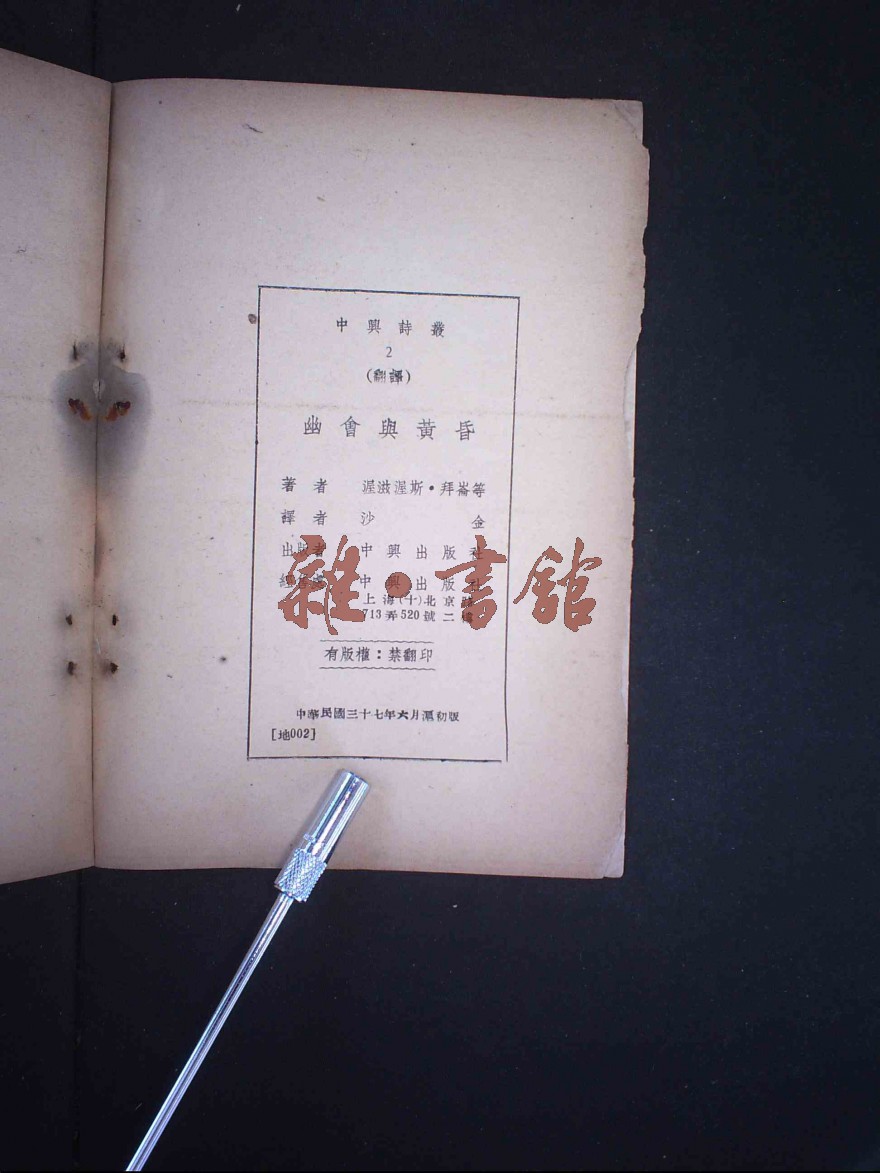 中興詩叢
2
(翻譯)
幽會與黃昏
著者 渥滋渥斯·拜崙等
譯者 沙金
出版者 中興出版社
中興出版社
上海(十)北京路
713弄520號二樓
有版權：禁翻印
中華民國三十七年六月滬初版
[地002]
雜·書館